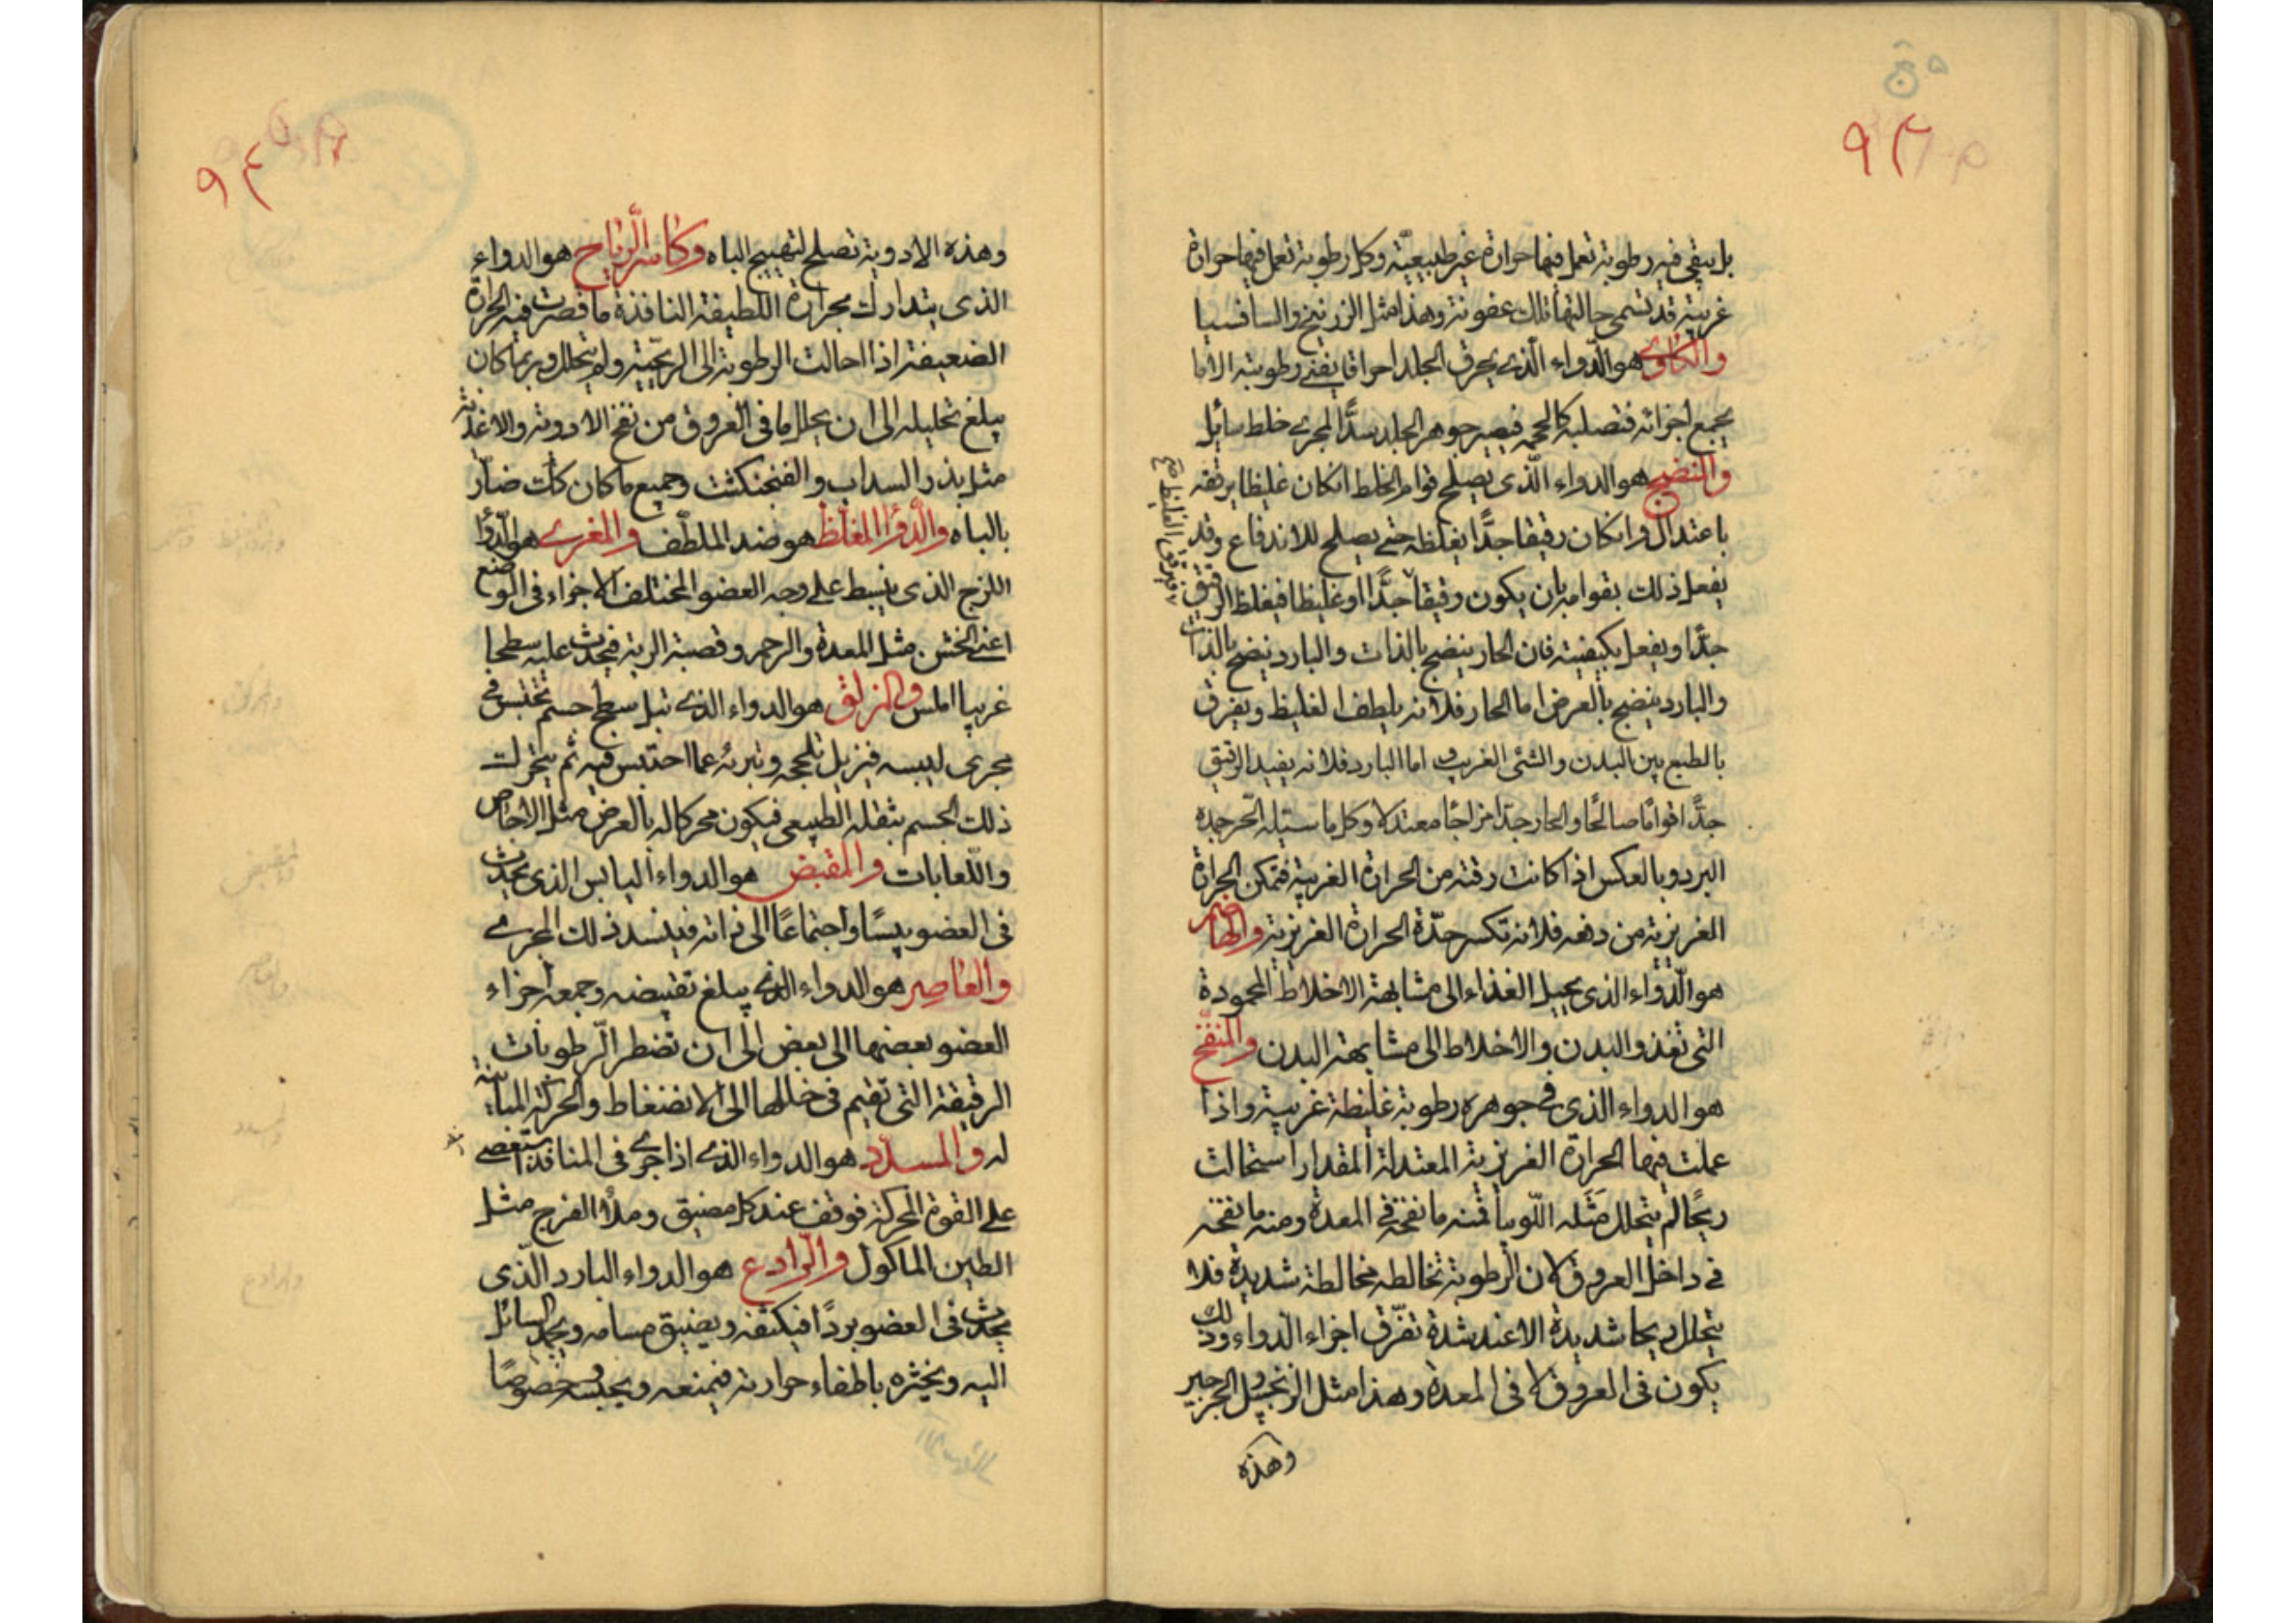 ٩٣
بل يبقى فيه رطوبة تعمل فيها حرارة غير طبيعيّة وكل رطوبة تعمل فيها حرارة
غريبة قد تسمى حالتها تلك عفونة وهذا مثل الزرنيخ والسافسيا
والكاوى هو الدّواء الّذى يحرق الجلد احراقا يفنى رطوبته الاما
يجمع اجزائه فتصلبه كالحمه فيصير جوهر الجلد سدًّا لمجرى خلط سائل
والنضج هو الدواء الّذى يصلح قوام الخلط انكان غليظا يرققه
باعتدال وانكان رقيقا جدًّا يغلظه حتى يصلح للاندفاع وقد
يفعل ذلك بقوامه بان يكون رقيقا جدًّا او غليظا فيغلظ الرقيق
فيرقق الغليظ صح
جدًّا ويفعل بكيفيته فان الحار ينضج بالذات والبارد ينضج بالذات
والبارد ينضج بالعرض اما الحار فلانه يلطف الغليظ ويفرق
بالطبع بين البدن والشئى الغريب اما البارد فلانه يفيد الرقيق
جدًّا قوامًا صالحًا والحار جدّا مزاجًا معتدلا وكل ما سيّله الحر جمده
البرد وبالعكس اذا كانت رقته من الحرارة الغريبة فتمكن الحرارة
الغريزية من دفعه فلانه تكسر حدّة الحرارة الغريزية والهاضم
هو الدّواء الذى يحيل الغذاء الى مشابهة الاخلاط المحمودة
التى تغذو البدن والاخلاط الى مشابهة البدن والمنفّخ
هو الدواء الذى فى جوهره رطوبة غليظة غريبة واذا
عملت فيها الحرارة الغريزية المعتدلة المقدار استحالت
ريحًا لم يتحلل مثله اللّوبيا فمنه ما نفخه فى المعدة ومنه ما نفخه
فى داخل العروق لان الرطوبة تخالطه مخالطة شديدة فلا
يتحلل ريحا شديدة الا عند شدة تفرّق اجزاء الدواء وذلك
يكون فى العروق لا فى المعدة وهذا مثل الزنجبيل والجرجير
وهذه
٩٤
وهذه الادوية تصلح لتهييج الباه وكاسر الرّياح هو الدواء
الذى يتدارك بحرارة اللطيفة النافذة ما قصرت فيه الحرارة
الضعيفة اذا احالت الرطوبة الى الريحيّة ولم يتحلل وربما كان
يبلغ تحليله الى ان يحلل ما فى العروق من نفخ الادوية والاغذية
مثل بذر السداب والفنجنكشت وجميع ما كان كك ضارّ
بالباه والدّواء المغلّظ هو ضد الملطّف والمغرى هو الدّواء
اللزج الذى ينبسط على وجه العضو المختلف الاجزاء فى الوضع
اعنى الخشن مثل المعدة والرحم وقصبة الرية فيحدث عليه سطحا
غريبا املس والمزلق هو الدواء الذى تبل سطح جسم تحتبس فى
مجرى ليبسه فيزيل تلحجه وتبرئه عما احتبس فيه ثم يتحرك
ذلك الجسم بثقله الطبيعى فيكون محركا له بالعرض مثل الاجاص
واللّعابات والمقبض هو الدواء اليابس الذى يحدث
فى العضو يبسًا واجتماعًا الى ذاته فينسد ذلك المجرى
والعاصر هو الدواء الذى يبلغ تقبيضه وجمعه اجزاء
العضو بعضها الى بعض الى ان تضطر الرّطوبات
الرقيقة التى تقيم فى خللها الى الانضغاط والحركة المباينة
له والمسدّد هو الدواء الذى اذا جرى فى المنافذ استعصى
على القوة المحركة فوقف عند كل مضيق وملأ الفرج مثل
الطين الماكول والرّادع هو الدواء البارد الّذى
يحدث فى العضو بردًا فيكثفه ويضيق مسامه ويجمد السائل
اليه ويخثره باطفاء حرارته فيمنعه ويحبسه خصوصًا